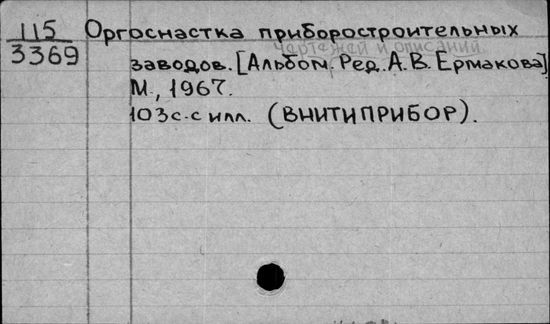 115
3369
Оргоснастка приборостроительных
чертежей и описаний
заводов. [Альбом. Ред. А. В. Ермакова]
М., 1967.
103 с. с илл. (ВНИТИПРИБОР).